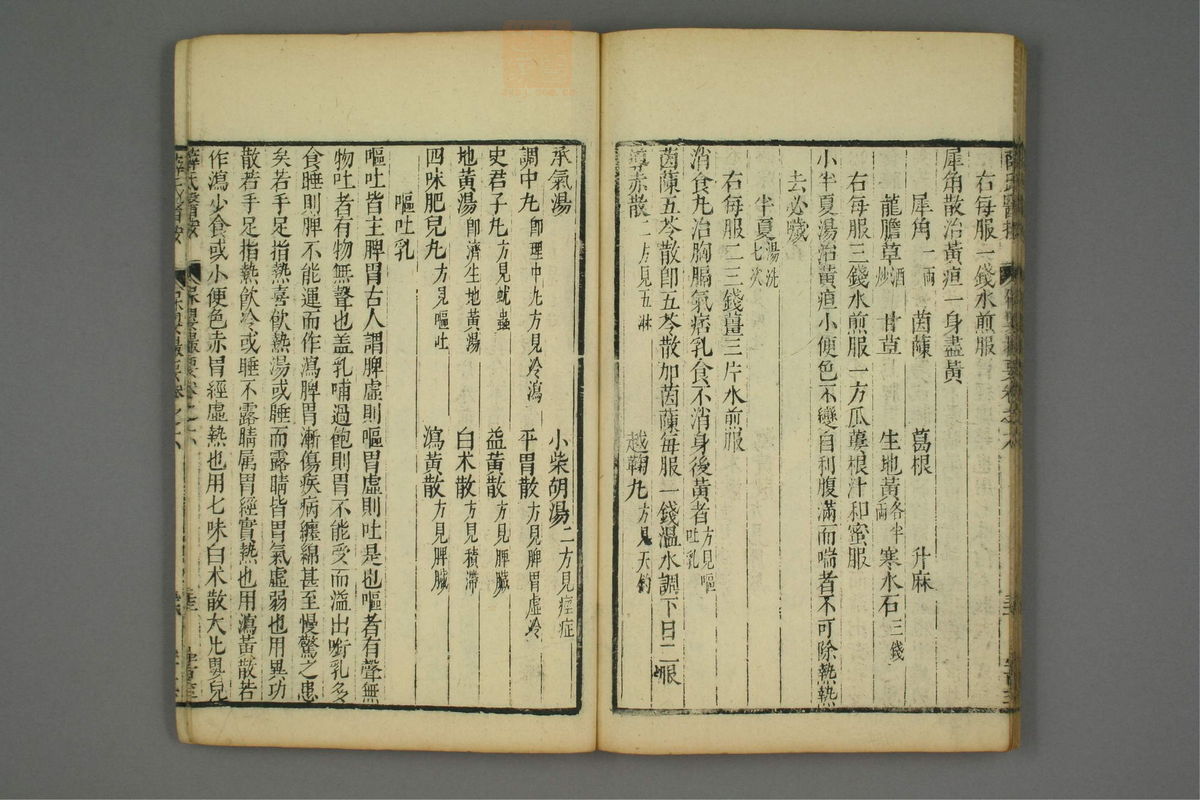 右每服一錢水煎服
犀角散治黃疸一身盡黃
犀角一兩 茵蔯 葛根 升麻
龍膽草酒炒 甘草 生地黃各半兩 寒水石三錢
右每服三錢水煎服一方瓜蔞根汁和蜜服
小半夏湯治黃疸小便色不變自利腹滿而喘者不可除熱熱
去必噦
半夏湯洗七次
右每服二三錢薑三片水煎服
消食丸治胸膈氣痞乳食不消身後黃者方見嘔吐乳
茵蔯五苓散卽五苓散加茵蔯每服一錢溫水調下日二服
導赤散二方見五淋 越鞠丸方見天釣
承氣湯 小柴胡湯二方見痙症
調中丸卽理中丸方見冷瀉 平胃散方見脾胃虛冷
史君子丸方見蚘蟲 益黃散方見脾臟
地黃湯卽濟生地黃湯 白术散方見積滯
四味肥兒丸方見嘔吐 瀉黃散方見脾臟
嘔吐乳
嘔吐皆主脾胃古人謂脾虛則嘔胃虛則吐是也嘔者有聲無
物吐者有物無聲也盖乳哺過飽則胃不能受而溢出衝乳多
食睡則脾不能運而作瀉脾胃漸傷疾病纏綿甚至慢驚之患
矣若手足指熱喜飲熱湯或睡而露睛皆胃氣虛弱也用異功
散若手足指熱飲冷或睡不露睛属胃經實熱也用瀉黃散若
作瀉少食或小便色赤胃經虛熱也用七味白术散大凢嬰兒